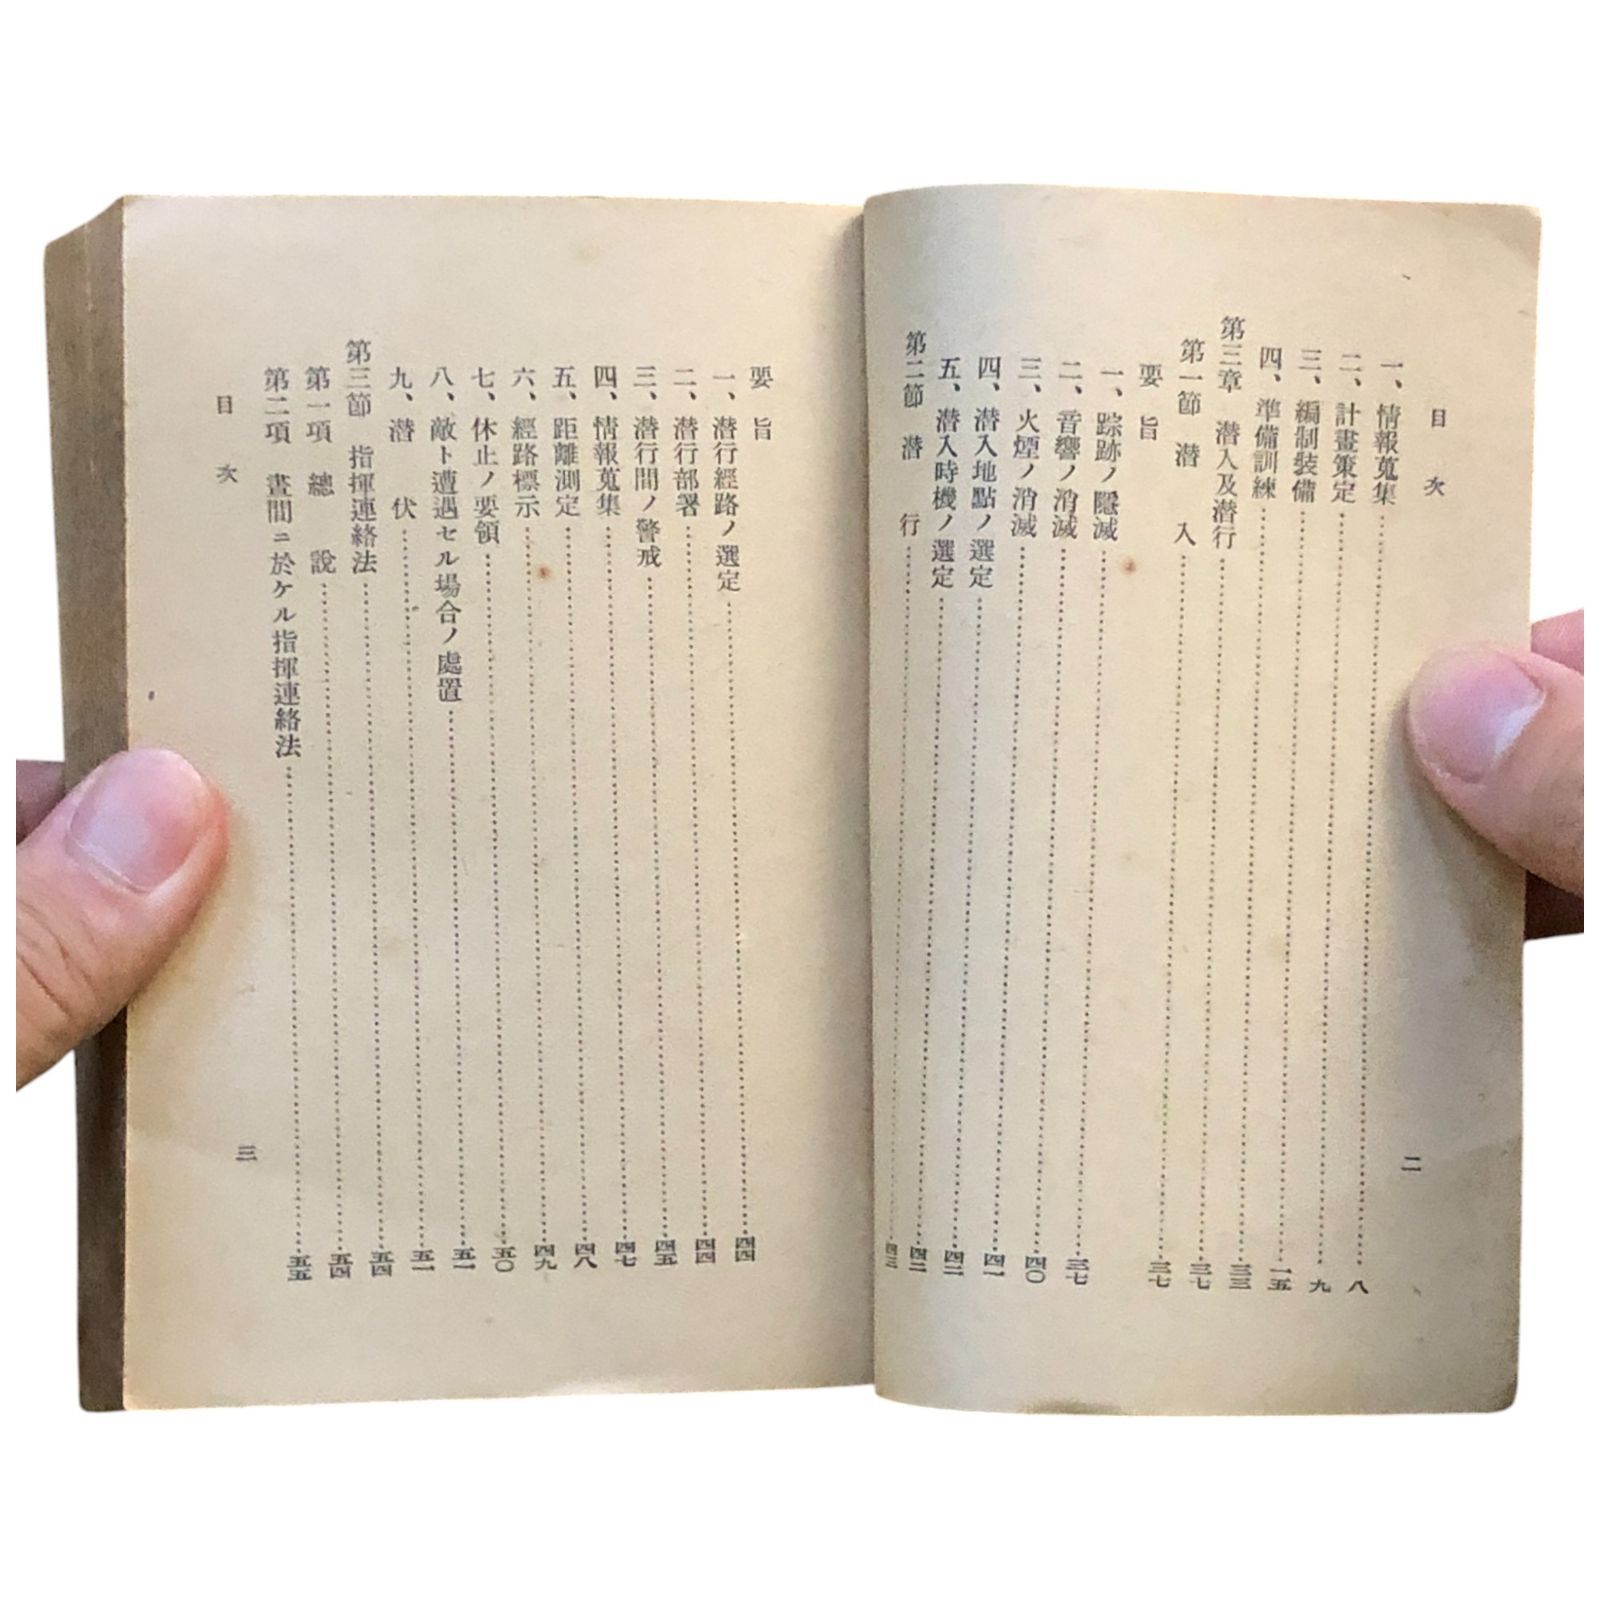 目次
一、情報蒐集 八
二、計畫策定 九
三、編制裝備 一五
四、準備訓練 三三
第三章 潜入及潜行 三七
第一節 潜入 三七
要旨
一、踪跡ノ隱滅 三七
二、音響ノ消滅 四〇
三、火煙ノ消滅 四一
四、潜入地點ノ選定 四二
五、潜入時機ノ選定 四二
第二節 潜行 四三
二
要旨
一、潜行經路ノ選定 四四
二、潜行部署 四四
三、潜行間ノ警戒 四五
四、情報蒐集 四七
五、距離測定 四八
六、經路標示 四九
七、休止ノ要領 五〇
八、敵ト遭遇セル場合ノ處置 五一
九、潜伏 五一
第三節 指揮連絡法 五四
第一項 總說 五四
第二項 晝間ニ於ケル指揮連絡法 五五
目次
三